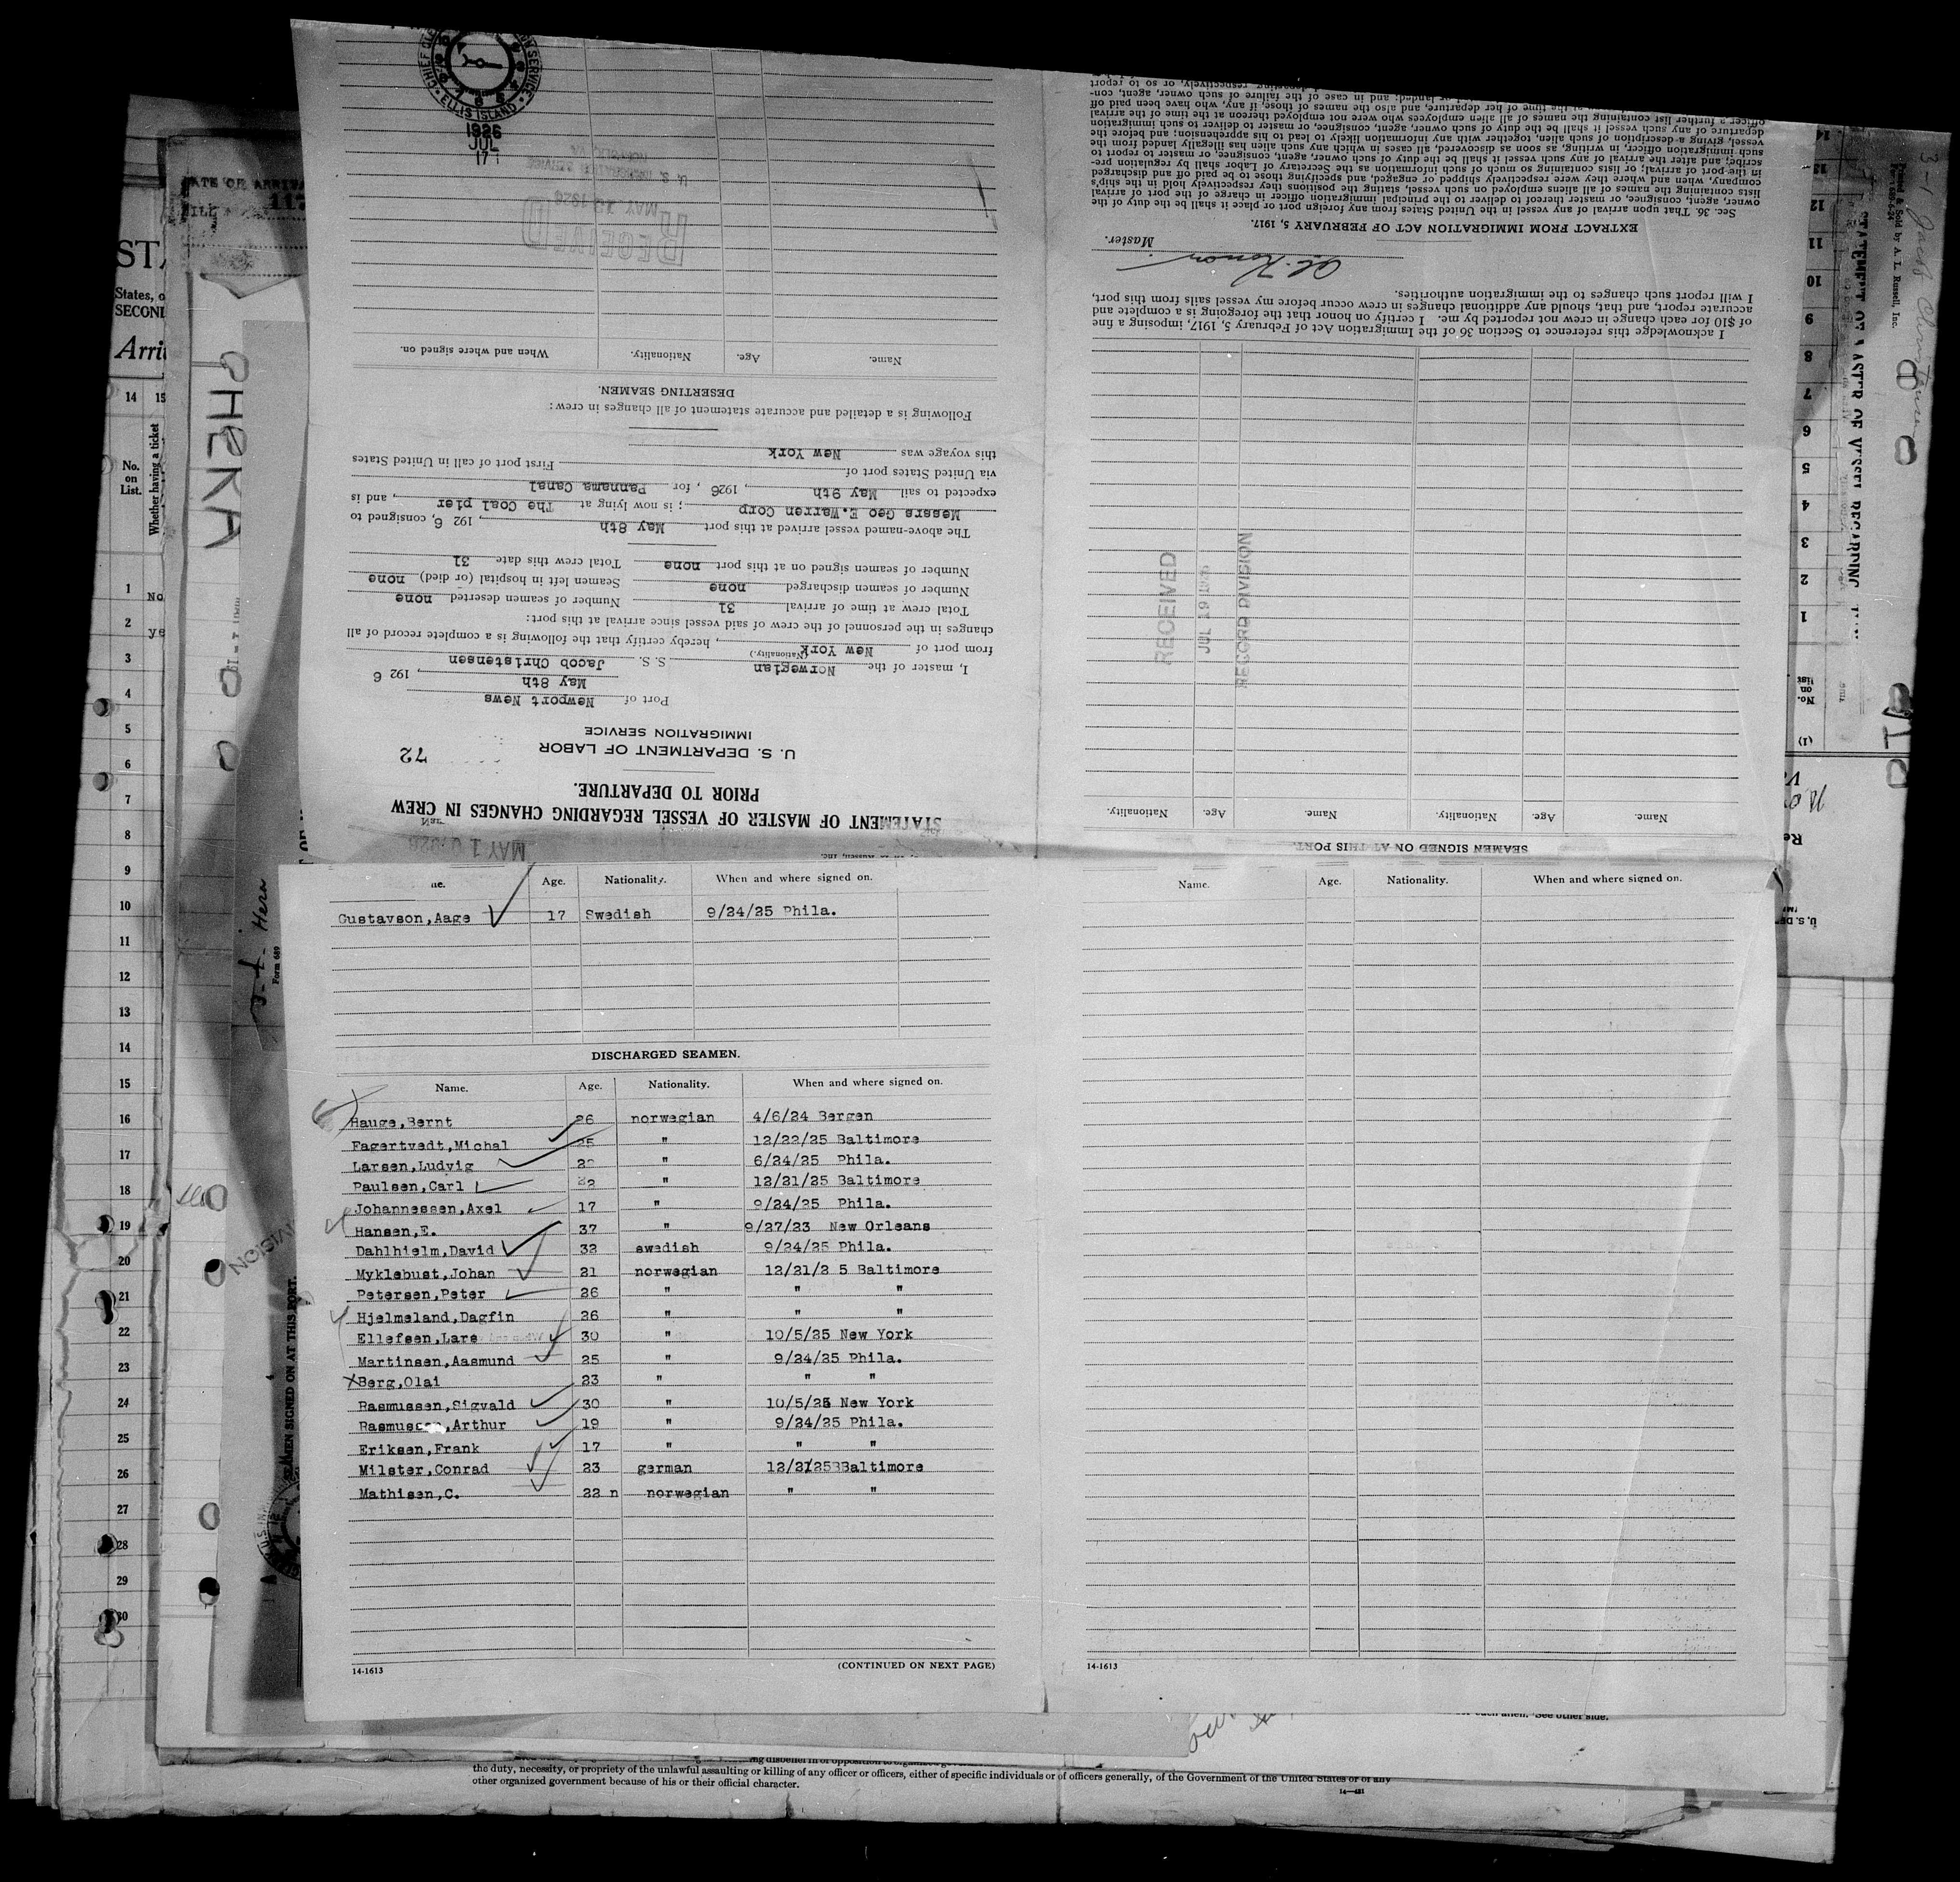 STATEMENT OF MASTER OF VESSEL REGARDING CHANGES IN CREW
PRIOR TO DEPARTURE.
72
U. S. DEPARTMENT OF LABOR
IMMIGRATION SERVICE
Port of Newport News
May 8th, 192 6
I, master of the Norwegian S. S. Jacob Christensen
(Nationality.)
from port of New York, hereby certify that the following is a complete record of all
changes in the personnel of the crew of said vessel since arrival at this port:
Total crew at time of arrival 31 Number of seamen deserted none
Number of seamen discharged none Seamen left in hospital (or died) none
Number of seamen signed on at this port none Total crew this date 31
The above-named vessel arrived at this port May 8th, 192 6, consigned to
Messrs Geo E.Warren Corp; is now lying at The Coal pier, and is
expected to sail May 9th, 1926, for Pannama Canal
via United States port of First port of call in United States
this voyage was New York
Following is a detailed and accurate statement of all changes in crew:
DESERTING SEAMEN.
Name. Age. Nationality. When and where signed on.
RECEIVED
MAY 12 1926
U. S. IMMIGRATION SERVICE
NORFOLK, VA
ELLIS ISLAND
1926
JUL
17
SEAMEN SIGNED ON AT THIS PORT.
Name. Age. Nationality. Name. Age. Nationality.
RECEIVED
JUL 19 1926
RECORD DIVISION
I acknowledge this reference to Section 36 of the Immigration Act of February 5, 1917, imposing a fine
of $10 for each change in crew not reported by me. I certify on honor that the foregoing is a complete and
accurate report, and that, should any additional changes in crew occur before my vessel sails from this port,
I will report such changes to the immigration authorities.
Master.
EXTRACT FROM IMMIGRATION ACT OF FEBRUARY 5, 1917.
Sec. 36. That upon arrival of any vessel in the United States from any foreign port or place it shall be the duty of the
owner, agent, consignee, or master thereof to deliver to the principal immigration officer in charge of the port of arrival
lists containing the names of all aliens employed on such vessel, stating the positions they respectively hold in the ship's
company, when and where they were respectively shipped or engaged, and specifying those to be paid off and discharged
in the port of arrival; or lists containing so much of such information as the Secretary of Labor shall by regulation pre-
scribe; and after the arrival of any such vessel it shall be the duty of such owner, agent, consignee, or master to report to
such immigration officer, in writing, as soon as discovered, all cases in which any such alien has illegally landed from the
vessel, giving a description of such alien, together with any information likely to lead to his apprehension; and before the
departure of any such vessel it shall be the duty of such owner, agent, consignee, or master to deliver to such immigration
officer a further list containing the names of all alien employees who were not employed thereon at the time of the arrival
MAY 10 1926
Age. Nationality. When and where signed on.
Gustavson,Aage 17 Swedish 9/24/25 Phila.
DISCHARGED SEAMEN.
Name. Age. Nationality. When and where signed on.
Hauge,Bernt 26 norwegian 4/6/24 Bergen
Fagertvedt,Michal 25 " 12/22/25 Baltimore
Larsen,Ludvig " 6/24/25 Phila.
Paulsen,Carl " 12/21/25 Baltimore
Johannessen,Axel 17 " 9/24/25 Phila.
Hansen,E. 37 " 9/27/23 New Orleans
Dahlhielm,David 32 swedish 9/24/25 Phila.
Myklebust,Johan 21 norwegian 12/21/2 5 Baltimore
Petersen,Peter 26 " " "
Hjelmeland,Dagfin 26 " " "
Ellefsen,Lars 30 " 10/5/25 New York
Martinsen,Aasmund 25 " 9/24/25 Phila.
Berg,Olai 23 " " "
Rasmussen,Sigvald 30 " 10/5/25 New York
Arthur 19 " 9/24/25 Phila.
Eriksen,Frank 17 " " "
Milster,Conrad 23 german 12/21/25 Baltimore
Mathisen,C. 22 n norwegian " "
14-1613 (CONTINUED ON NEXT PAGE)
Name. Age. Nationality. When and where signed on.
14-1613
the duty, necessity, or propriety of the unlawful assaulting or killing of any officer or officers, either of specific individuals or of officers generally, of the Government of the United States or of any
other organized government because of his or their official character.
No.
on
List.
Whether having a ticket
14 15
1
2
3
4
5
6
7
8
9
10
11
12
13
14
15
16
17
18
19
20
21
22
23
24
25
26
27
28
29
30
SEAMEN SIGNED ON AT THIS PORT.
Form 689
Hera
Printed & Sold by A. L. Russell, Inc.